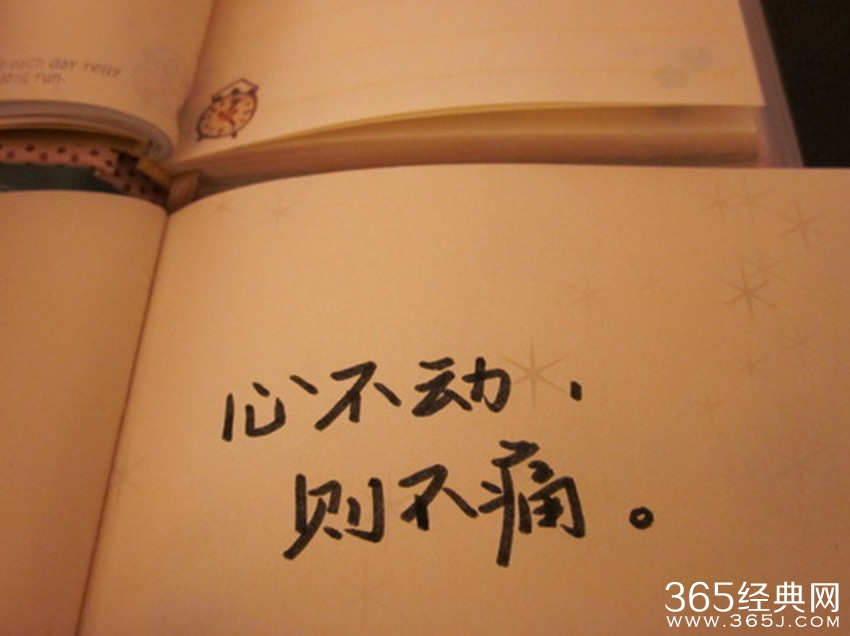 each day
run.
心不动，
则不痛。
365经典网
www.365J.com